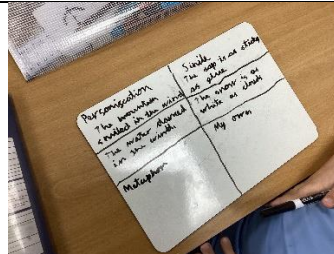 Personification
The mountain
smiled in the wind
The water danced
in the wind
Simile
The sap is as sticky
as glue
The snow is as
white as clouds
Metaphor
My own